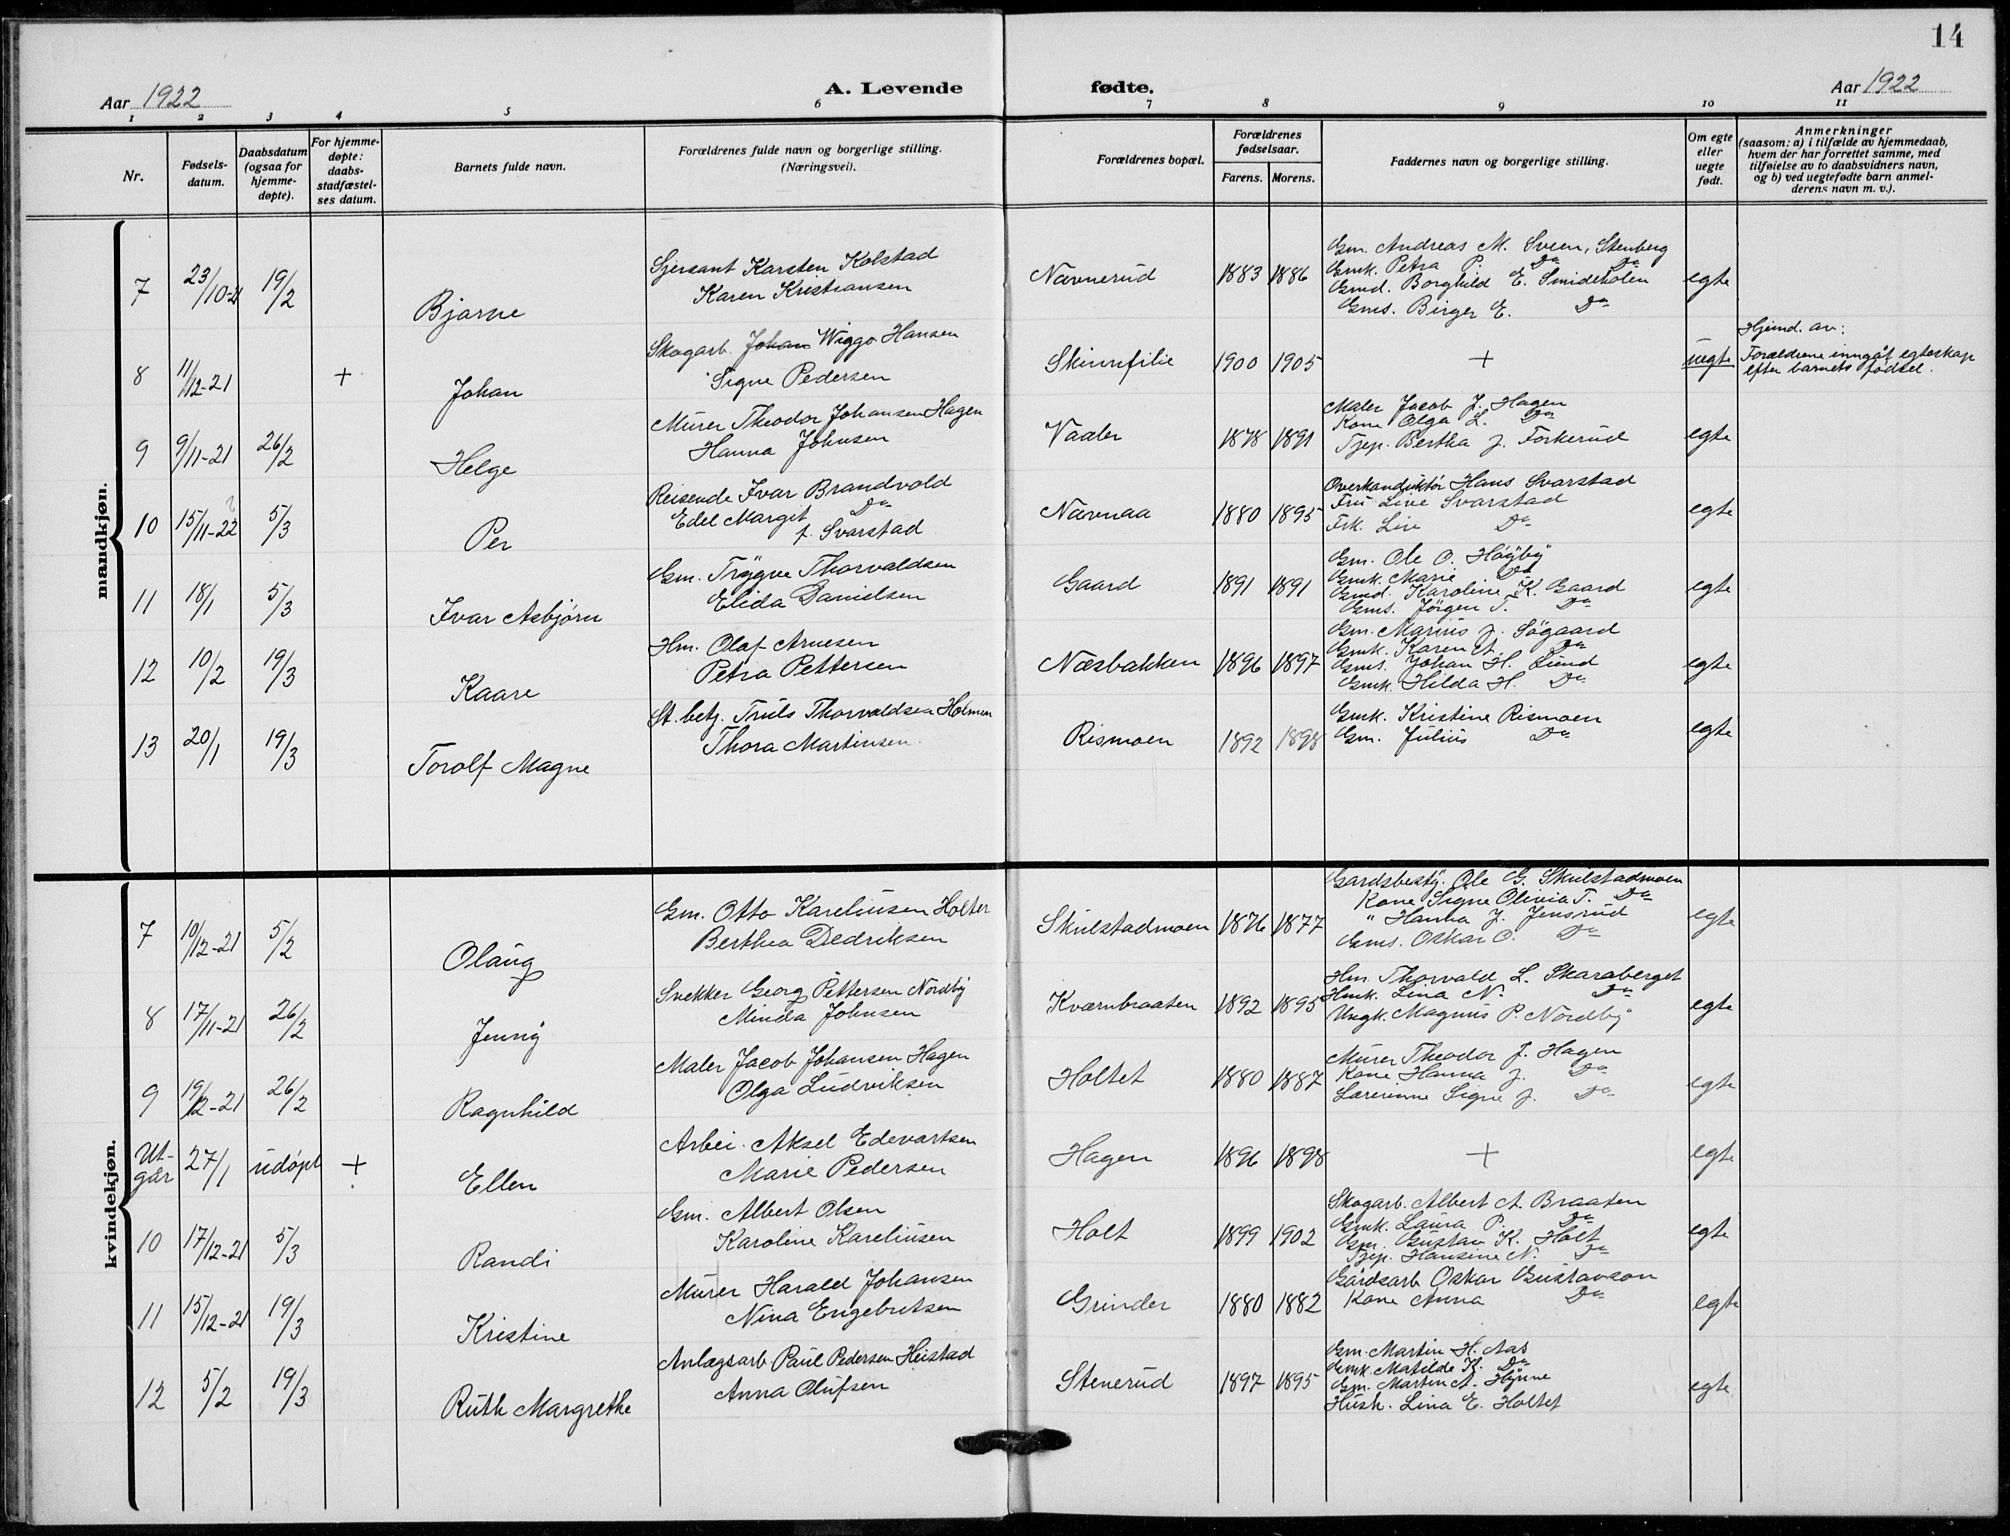 14
Aar 1922 A. Levende fødte. Aar 1922
1 2 3 4 5 6 7 8 9 10 11
Nr.
Fødsels-
datum.
Daabsdatum
(ogsaa for
hjemme-
døpte).
For hjemme-
døpte:
daabs-
stadfæstel-
ses datum.
Barnets fulde navn.
Forældrenes fulde navn og borgerlige stilling.
(Næringsvei).
Forældrenes bopæl.
Forældrenes
fødselsaar.
Farens. Morens.
Faddernes navn og borgerlige stilling.
Om egte
eller
uegte
født.
Anmerkninger
(saasom: a) i tilfælde av hjemmedaab,
hvem der har forrettet samme, med
tilføielse av to daabsvidners navn,
og b) ved uegtefødte barn anmel-
derens navn m. v.).
mandkjøn.
7 23/10-21 19/2 Bjarne
Sjersant Karsten Kolstad
Karen Kristiansen
Nævnerud 1883 1886
Gm. Andreas M. Sveen, Stenberg
Gmk. Petra P. Do Do
Gmd. Borghild E. Smideholen
Gms. Birger E. Do
egte
8 11/12-21 + Johan
Skogarb. Johan Wiggo Hansen
Signe Pedersen
Skinnfilie 1900 1905 + uegte
Hjemd. av:
Forældrene inngåt egteskap
efter barnets fødsel.
9 9/11-21 26/2 Helge
Murer Theodor Johansen Hagen
Hanna Johnsen
Vaaler 1878 1891
Maler Jacob J. Hagen
Kone Olga L. Do
Tjep. Bertha J. Forkerud
egte
10 15/11-22 ? 5/3 Per
Reisende Ivar Brandvold
Edel Margit Do
f. Svarstad
Nævnaa 1880 1895
Overkonduktør Hans Svarstad
Fru Live Svarstad
Frk. Liv Do
egte
11 18/1 5/3 Ivar Asbjørn
Gm. Trygve Thorvaldsen
Elida Danielsen
Gaard 1891 1891
Gm. Ole O. Høgby
Gmk. Marie Do
Gmd. Karoline K. Gaard
Gms. Jørgen T. Do
egte
12 10/2 19/3 Kaare
Hm. Olaf Arnesen
Petra Pettersen
Næsbakken 1896 1897
Gm. Marius J. Søgaard
Gmk. Karen A. Do
Gms. Johan H. Lund
Gmk. Hilda H. Do
egte
13 20/1 19/3 Torolf Magne
St. betj. Truls Thorvaldsen Holmen
Thora Martinsen.
Rismoen 1892 1898
Gmk. Kristine Rismoen
Gm. Julius Do
egte
kvindekjøn.
7 10/12-21 5/2 Olaug
Gm. Otto Kareliusen Holter
Berthea Dedriksen
Skulstadmoen 1876 1877
Gardsbesty. Ole G. Skulstadmoen
Kone Signe Olivia T. Do
" Hanna J. Jensrud
Gms. Oskar O. Do
egte
8 17/11-21 26/2 Jenny
Snekker Georg Pettersen Nordby
Minda Johnsen
Kværnbraaten 1892 1895
Hm. Thorvald L. Skaraberget
Hmk. Lina N. Do
Ungk. Magnus P. Nordby
egte
9 19/12-21 26/2 Ragnhild
Maler Jacob Johansen Hagen
Olga Ludviksen
Holtet 1880 1887
Murer Theodor J. Hagen
Kone Hanna J. Do
Lærerinne Signe J. Do
egte
Ut-
går 27/1 udøpt + Ellen
Arbei. Aksel Edevartsen
Marie Pedersen
Hagen 1896 1898 + egte
10 17/12-21 5/3 Randi
Gm. Albert Olsen
Karoline Kareliusen
Holt 1899 1902
Skogarb. Albert A. Braaten
Gmk. Laura P. Do
Gm. Gustav K. Holt
Tjep. Hansine N. Do
egte
11 15/12-21 19/3 Kristine
Murer Harald Johansen
Nina Engebretsen
Grinder 1880 1882
Gårdsarb Oskar Gustavson
Kone Anna Do
egte
12 5/2 19/3 Ruth Margrethe
Anlægsarb Paul Pedersen Heistad
Anna Olufsen
Stenerud 1897 1895
Gm. Martin H. Aas
Gmk. Matilde K. Do
Gm. Martin A. Hynne
Hush. Lina E. Holtet
egte